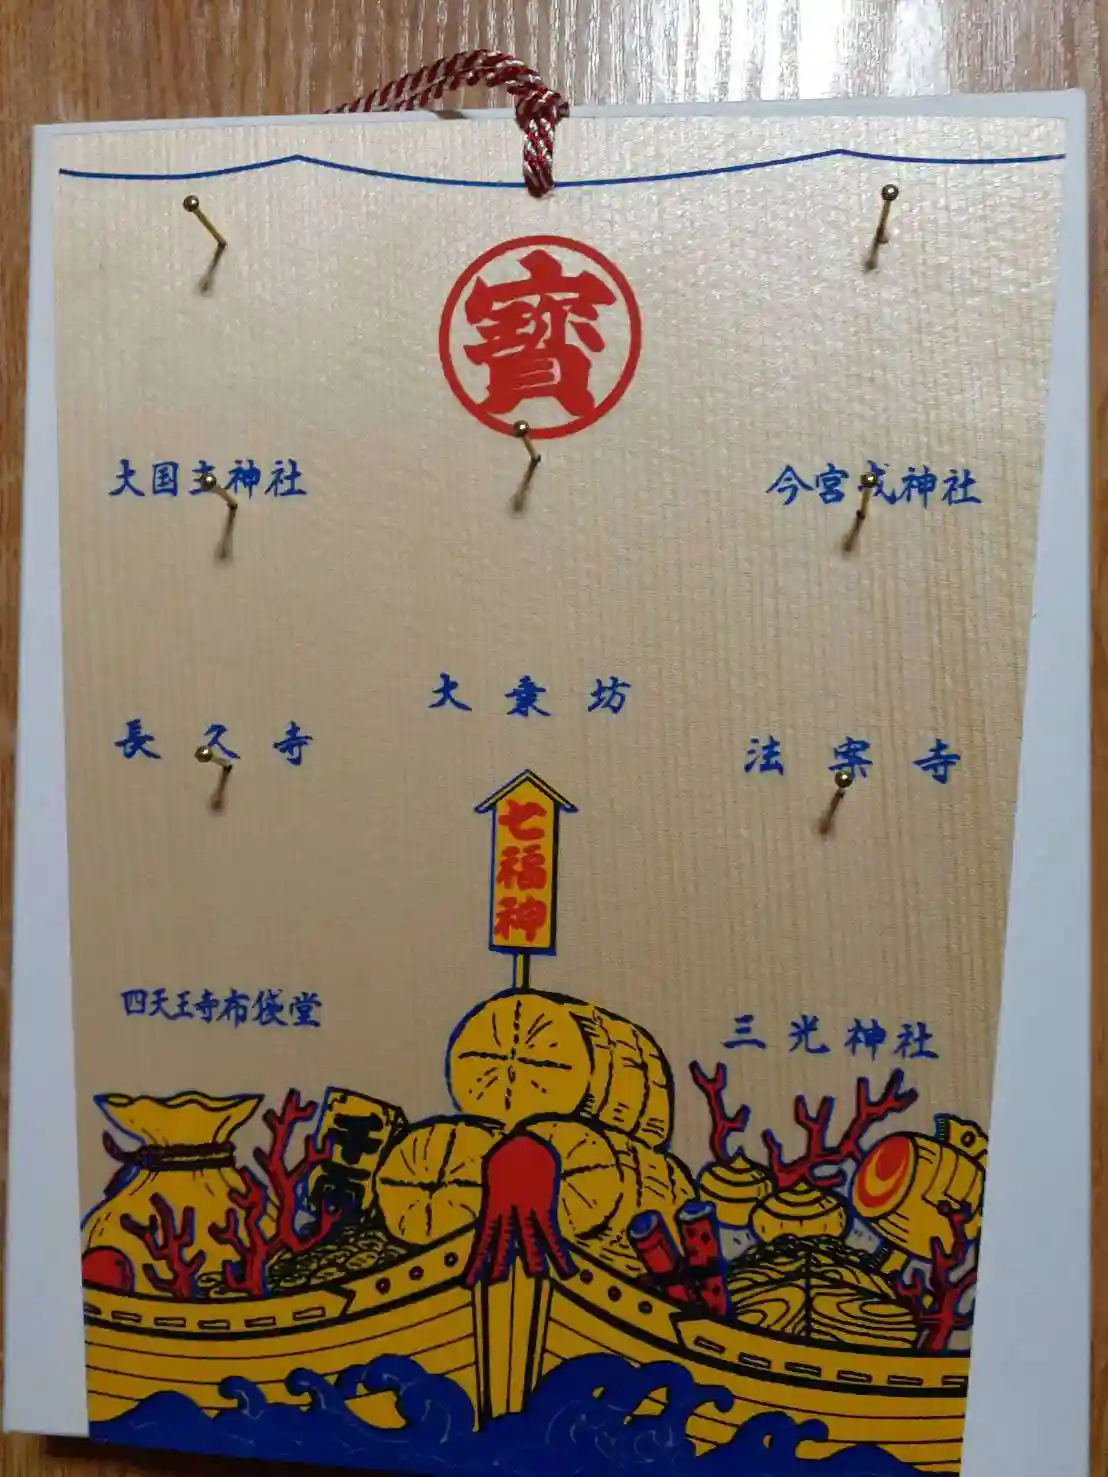 寳
大国主神社
今宮戎神社
大乗坊
長久寺
法案寺
七福神
四天王寺布袋堂
三光神社
千両